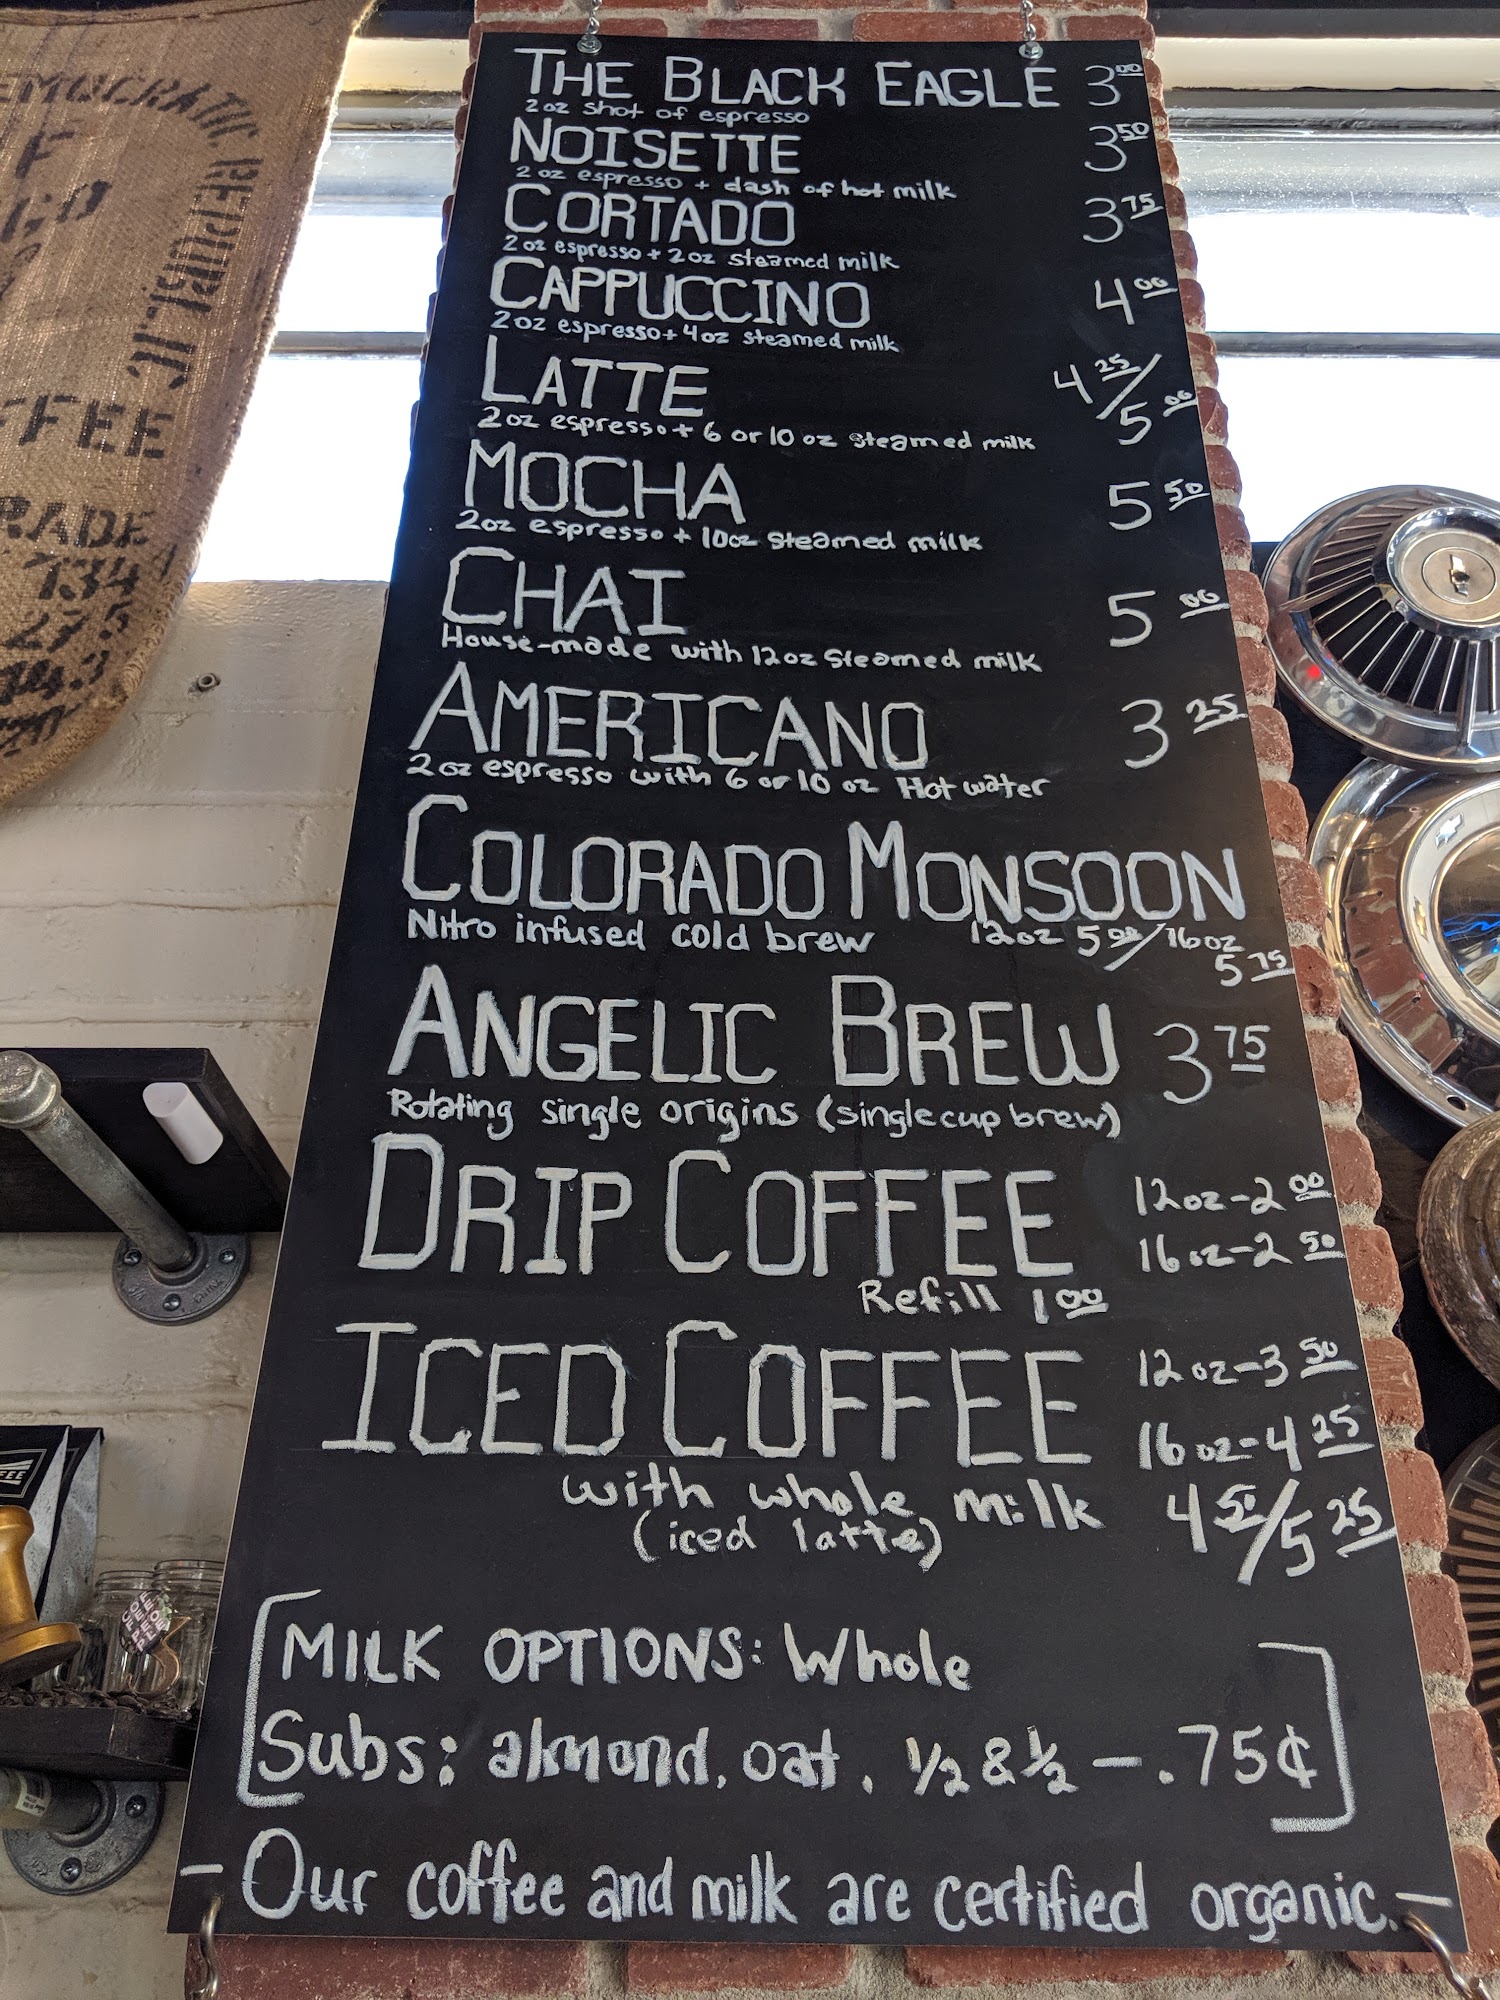 THE BLACK EAGLE 3 00
2oz shot of espresso
NOISETTE 3 50
2oz espresso + dash of hot milk
CORTADO 3 75
2oz espresso + 2oz steamed milk
CAPPUCCINO 4 00
2oz espresso + 4oz steamed milk
LATTE 4 25/5 00
2oz espresso + 6 or 10 oz steamed milk
MOCHA 5 50
2oz espresso + 10oz steamed milk
CHAI 5 00
House-made with 12oz Steamed milk
AMERICANO 3 25
2oz espresso with 6 or 10 oz Hot water
COLORADO MONSOON
Nitro infused cold brew 12oz 5 00/16oz 5 75
ANGELIC BREW 3 75
Rotating single origins (single cup brew)
DRIP COFFEE 12oz-2 00
16oz-2 50
Refill 1 00
ICED COFFEE 12oz-3 50
16oz-4 25
with whole milk 4 50/5 25
(iced latte)
[MILK OPTIONS: Whole
Subs: almond, oat, ½ & ½ - .75¢]
- Our coffee and milk are certified organic. -
EMOCRATIC REPUBLIC
FFEE
RADE
134
27.5